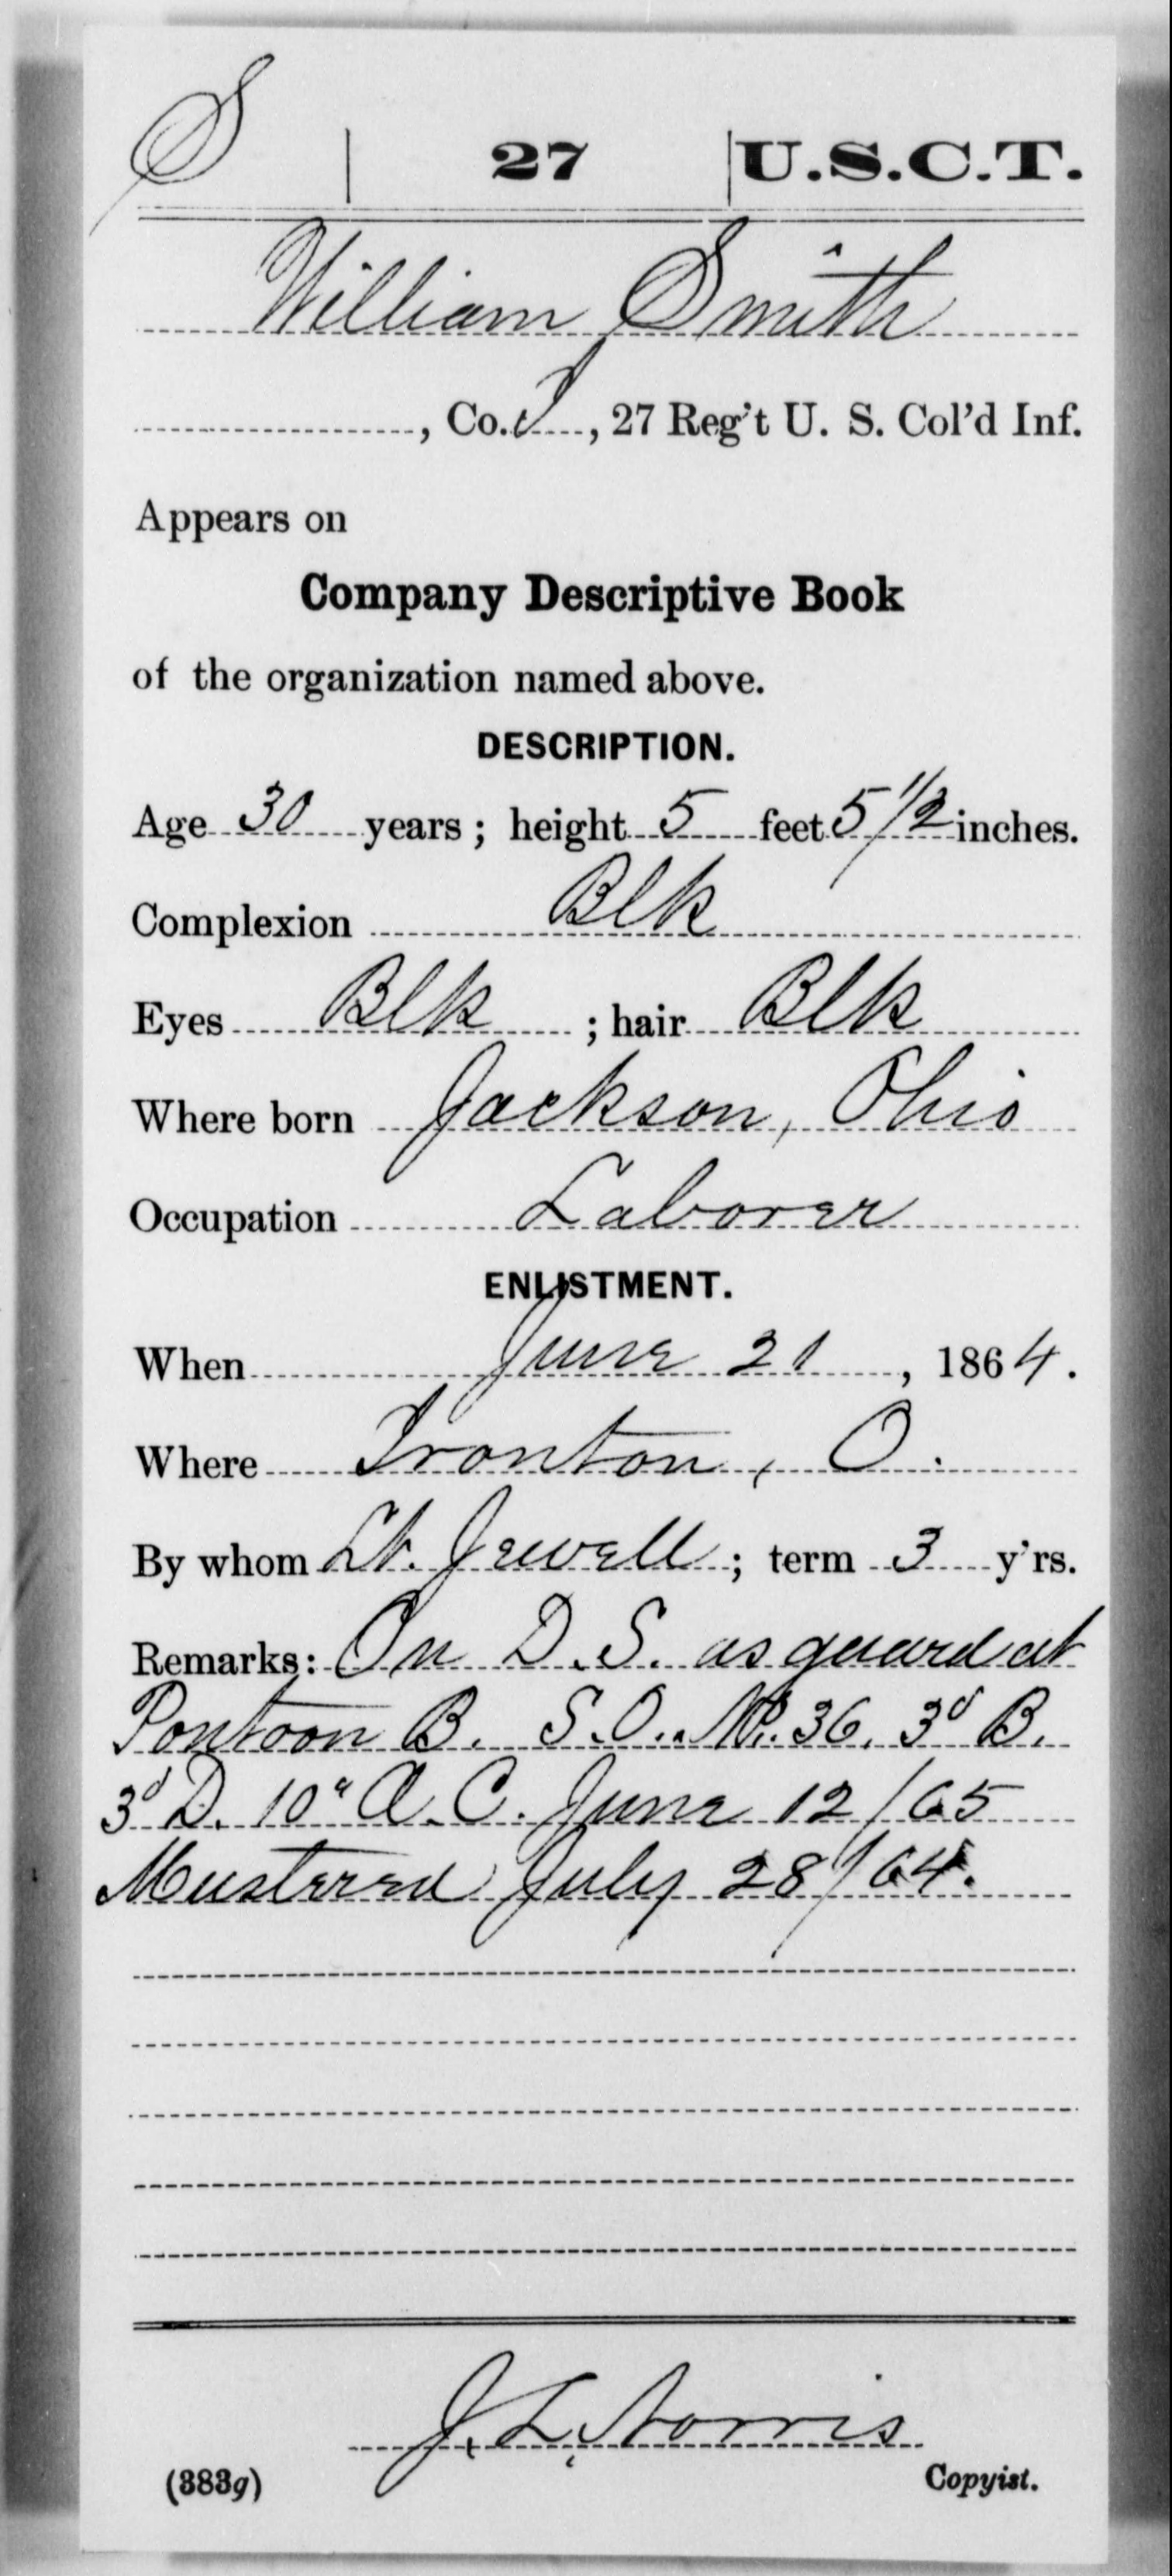 S | 27 | U.S.C.T.
William Smith
, Co. I, 27 Reg't U. S. Col'd Inf.
Appears on
Company Descriptive Book
of the organization named above.
DESCRIPTION.
Age 30 years; height 5 feet 5 1/2 inches.
Complexion Blk
Eyes Blk; hair Blk
Where born Jackson, Ohio
Occupation Laborer
ENLISTMENT.
When June 21, 1864.
Where Ironton, O.
By whom Lt. Jewell; term 3 y'rs.
Remarks: On D.S. as guard at
Pontoon B. S.O. No. 36. 3d B.
3d D. 10" A.C. June 12/65
Mustered July 28/64.
J. L. Norris
(383g) Copyist.